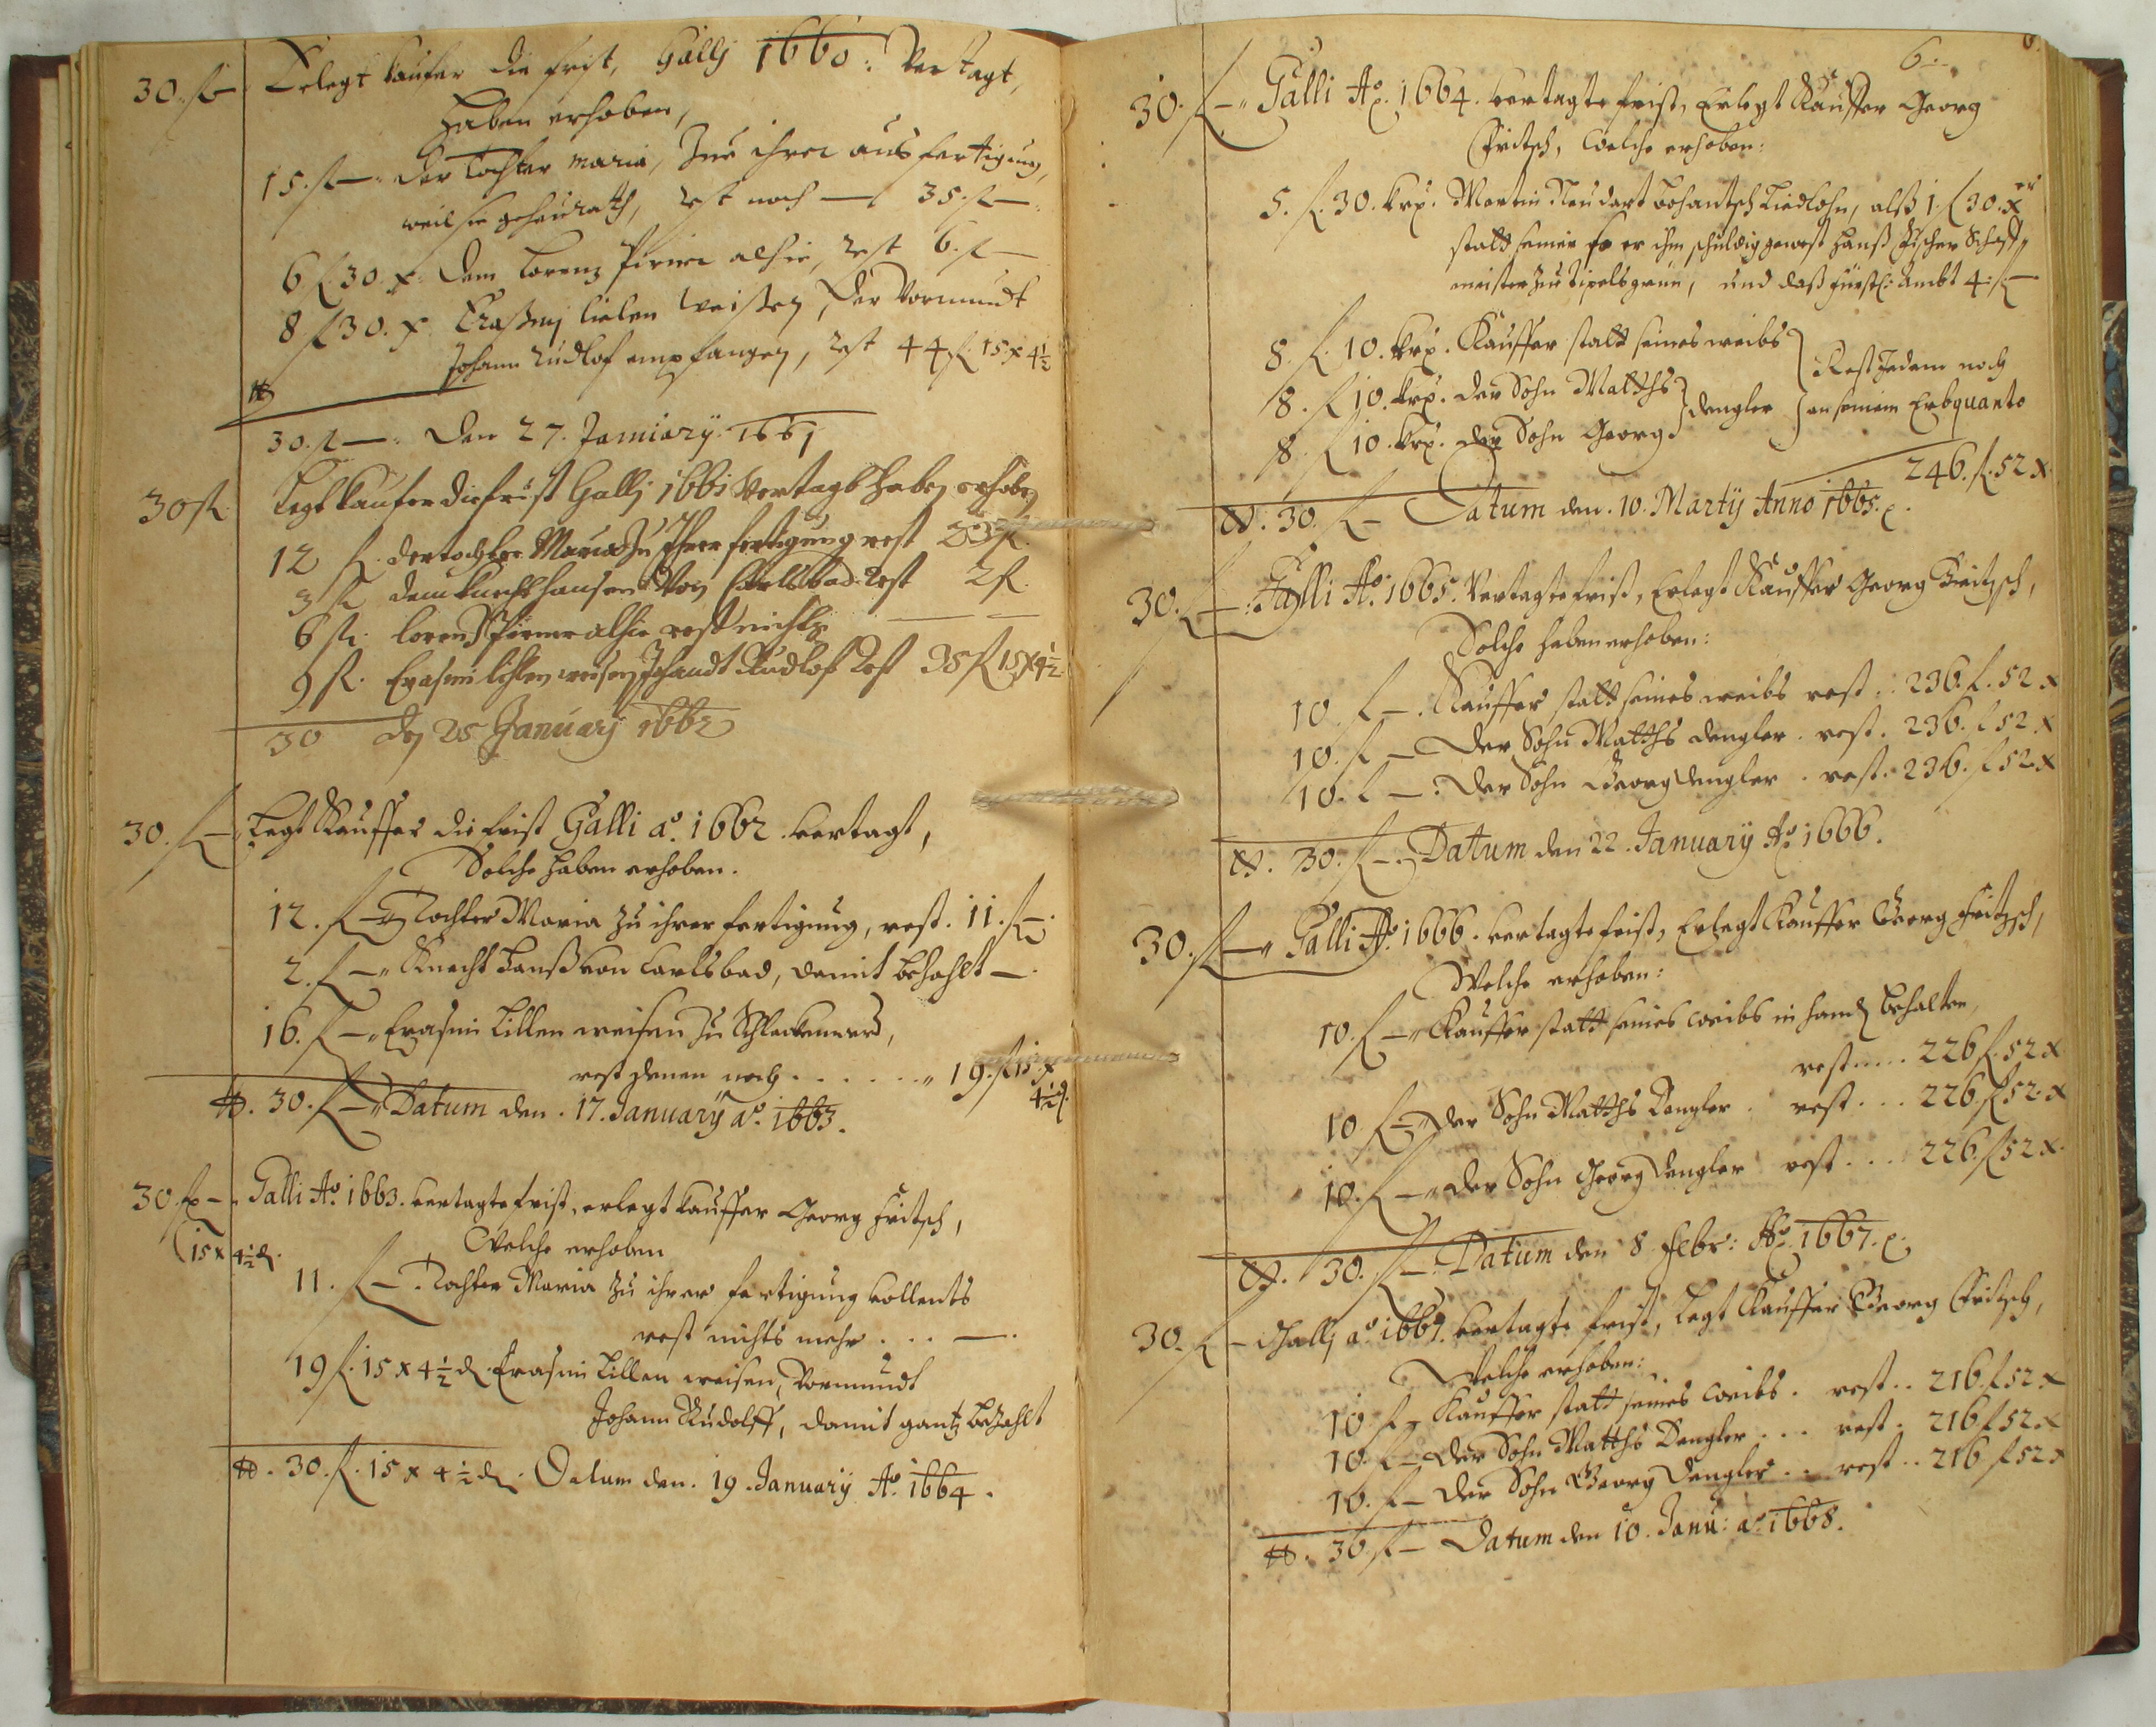 30. fl — Erlegt kaufer die frist, Gally 1660: Vertagt,
haben erhoben,
15. fl — der Tochter maria, Zue ihrer ausfertigung,
weil sie geheurath, rest noch — 35. fl —
6 fl 30. x. dem Lorenz Pirner alhie, rest 6. fl —
8 fl 30. x. Erasmj lielen weißen, der Vormundt
Johann Rudlof empfangen, rest 44 fl. 15 x 4½
30. fl —. den 27. Januarÿ. 1661
30 fl. Legt kaufer die frist Gallj 1661 Vertagt haben erhoben
12 fl. der tochter Maria Zu Ihrer fertigung rest 23 fl.
3 fl dem knecht hansen Von Carlsbad. Rest 2 fl.
6 fl. lorenz Pirner alhie rest nichts — —
9 fl. Erasmi lihlen weisen Johandt Rudlof Rest 35 fl 15 x 4½
30 den 25 January 1662
30. fl — Legt Kauffer die frist Galli aº. 1662. vertagt,
Solche haben erhoben.
12. fl — Tochter Maria zu ihrer fertigung, rest. 11. fl —.
2. fl — Knecht Hanß von Carlsbad, damit bezahlt —.
16. fl — Erasmi Lillen weisen zu Schlackenwerd,
rest denen noch . . . . . . . 19. fl 15 x
4½ d.
30. fl — Datum den. 17. Januarÿ aº. 1663.
30. fl — Galli Aº. 1663. vertagte frist, erlegt kauffer Georg Fritsch,
15 x 4½ d. Welche erhoben
11. fl — Tochter Maria zu ihrer fertigung vollents
rest nichts mehr . . . —.
19 fl. 15 x 4½ d. Erasmi Lillen weisen, Vormundt
Johann Rudolff, damit gantz bezahlt
30. fl. 15 x 4½ d. Datum den. 19. Januarÿ Aº. 1664.
6.
30. fl — Galli Aº. 1664. vertagte frist, Erlegt Kauffer Georg
Fritsch, Welche erhoben:
5. fl. 30. krx. Martin Liedlohn, alß 1. fl 30. x
statt seiner so er ihm schuldig gewest Hanß Fischer
meister zu Tipelsgrün, und daß fürstl: Ambt 4. fl —
8. fl. 10. krx. Kauffer statt seines weibs
8. fl 10. krx. der Sohn Matths } dengler } Rest Jedem noch
8. fl 10. krx. der Sohn Georg } an seinem Erbquanto
246. fl. 52 x.
30. fl — Datum den. 10. Martÿ Anno 1665.
30. fl —. Galli Aº. 1665. Vertagte frist, Erlegt Kauffer Georg Fritzsch,
Solche haben erhoben:
10. fl —. Kauffer statt seines weibs rest . . 236. fl. 52 x
10. fl — der Sohn Matths dengler . rest . 236. fl 52 x
10. fl —. der Sohn Georg dengler . rest . 236. fl 52 x
30. fl —. Datum den 22. Januarÿ Aº 1666.
30. fl — Galli Aº. 1666. vertagte frist, Erlegt Kauffer Georg Fritzsch,
Welche erhoben:
10. fl — Kauffer statt seines weibs in handt behalten,
rest . . . . 226 fl. 52 x
10 fl — der Sohn Matths Dengler . rest . . . 226. fl 52. x
10. fl — der Sohn Georg Dengler rest . . . 226. fl 52 x.
30. fl —. Datum den 8. Febr: Aº. 1667.
30. fl — Gallj aº. 1667. vertagte frist, Legt Kauffer Georg Fritzsch,
Welche erhoben:
10. fl — Kauffer statt seines weibs . rest . . 216. fl 52 x
10. fl — der Sohn Matths Dengler . . . rest . 216 fl 52. x
10. fl — der Sohn Georg Dengler . . rest . . 216 fl 52 x
30. fl — Datum den 10. Janu: aº. 1668.